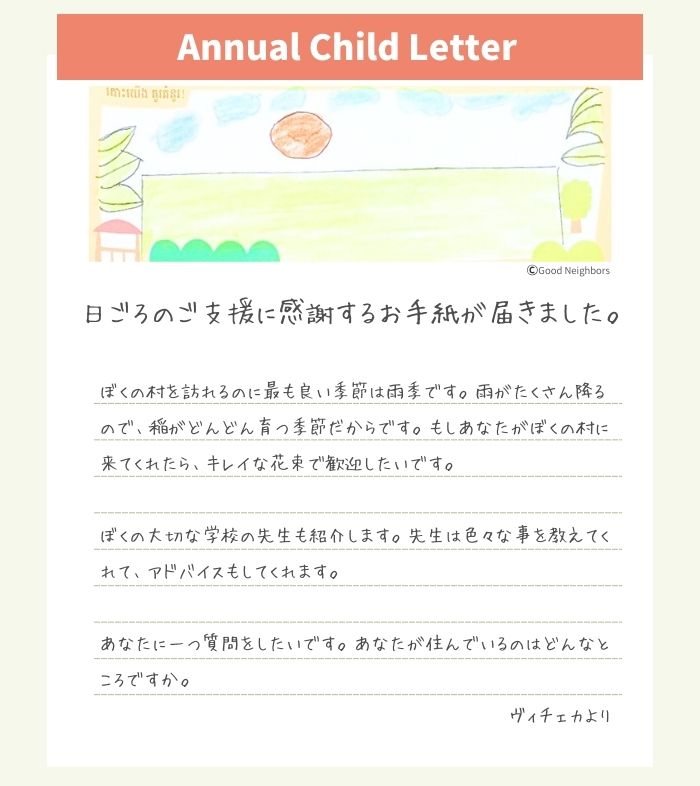 Annual Child Letter
©Good Neighbors
日ごろのご支援に感謝するお手紙が届きました。
ぼくの村を訪れるのに最も良い季節は雨季です。雨がたくさん降る
ので、稲がどんどん育つ季節だからです。もしあなたがぼくの村に
来てくれたら、キレイな花束で歓迎したいです。
ぼくの大切な学校の先生も紹介します。先生は色々な事を教えてく
れて、アドバイスもしてくれます。
あなたに一つ質問をしたいです。あなたが住んでいるのはどんなと
ころですか。
ヴィチェカより